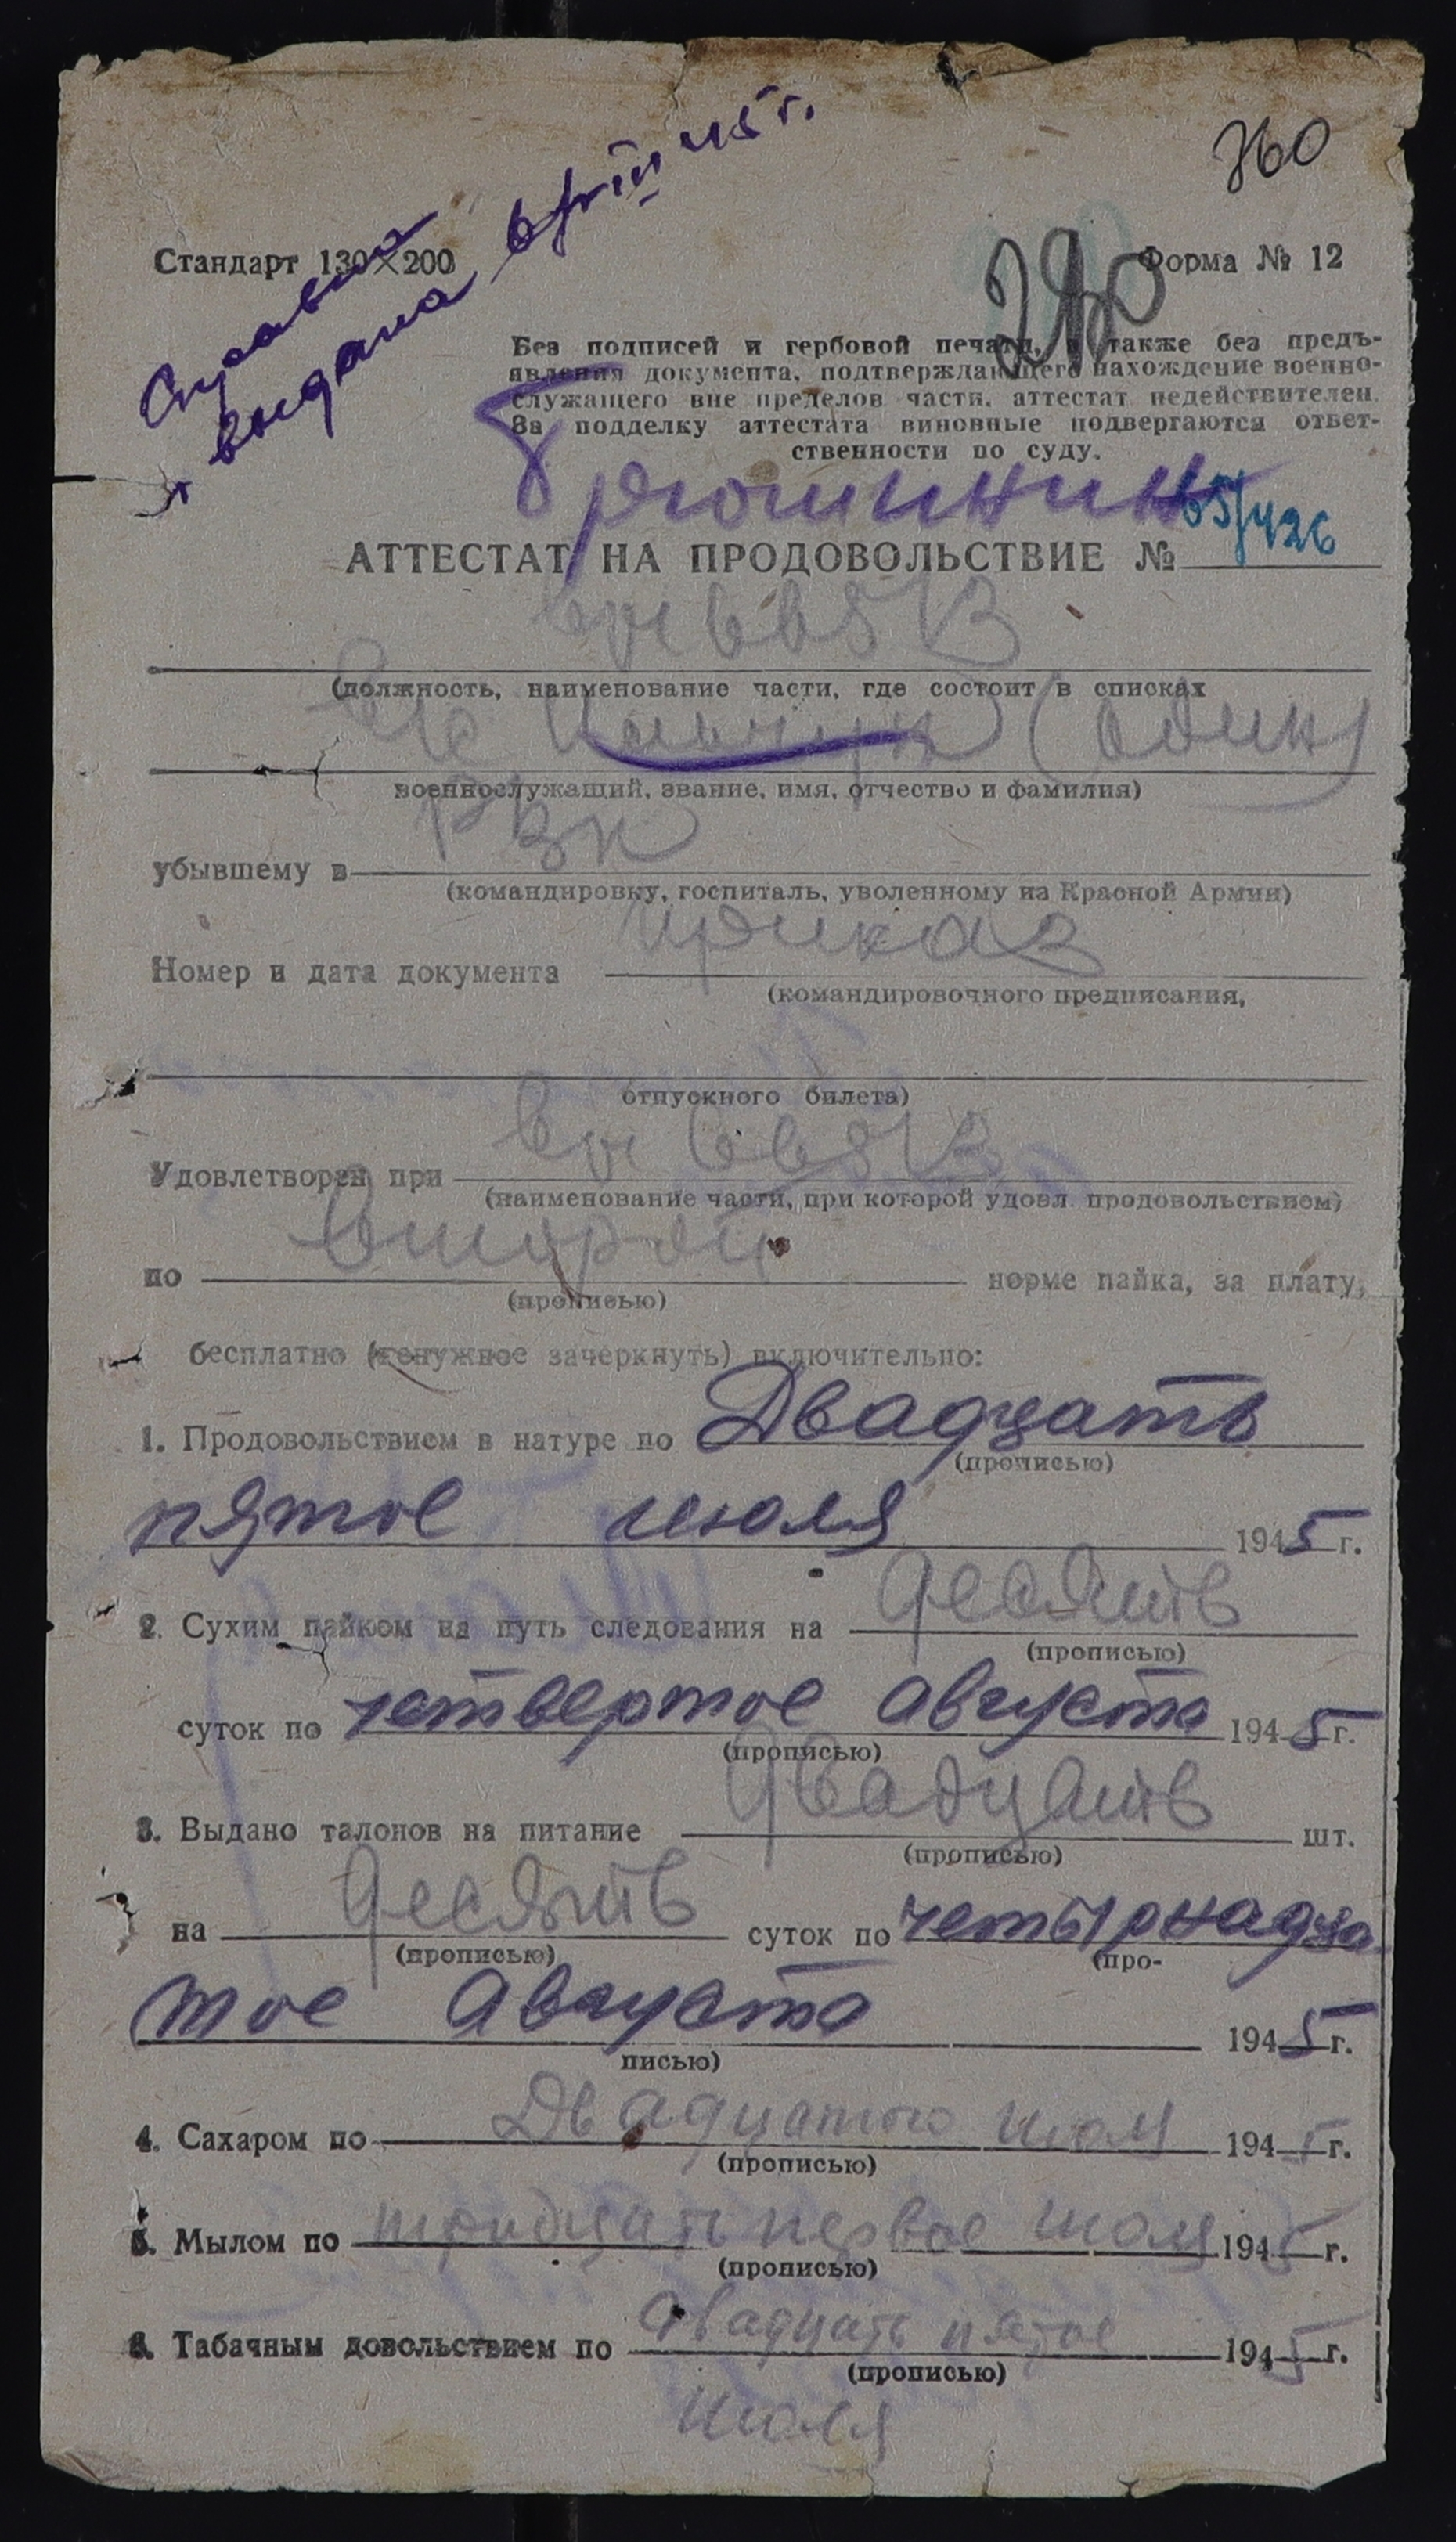 360
Справка
выдана 6/VIII 45 г.
Стандарт 130×200
Форма № 12
Без подписей и гербовой печати, а также без предъ-
явления документа, подтверждающего нахождение военно-
служащего вне пределов части, аттестат недействителен.
За подделку аттестата виновные подвергаются ответ-
ственности по суду.
65/426
АТТЕСТАТ НА ПРОДОВОЛЬСТВИЕ №
(должность, наименование части, где состоит в списках
(один)
военнослужащий, звание, имя, отчество и фамилия)
убывшему в РВК
(командировку, госпиталь, уволенному из Красной Армии)
Номер и дата документа приказ
(командировочного предписания,
отпускного билета)
Удовлетворен при
(наименование части, при которой удовл. продовольствием)
по Второй норме пайка, за плату,
(прописью)
бесплатно (ненужное зачеркнуть) включительно:
1. Продовольствием в натуре по Двадцать
(прописью)
пятое июля 1945 г.
2. Сухим пайком на путь следования на десять
(прописью)
суток по четвертое августа 1945 г.
(прописью)
3. Выдано талонов на питание двадцать шт.
(прописью)
на десять суток по четырнадца
(прописью) (про-
тое августа 1945 г.
писью)
4. Сахаром по 1945 г.
(прописью)
5. Мылом по тридцать первое июля 1945 г.
(прописью)
6. Табачным довольствием по двадцать пятое 1945 г.
(прописью)
июля